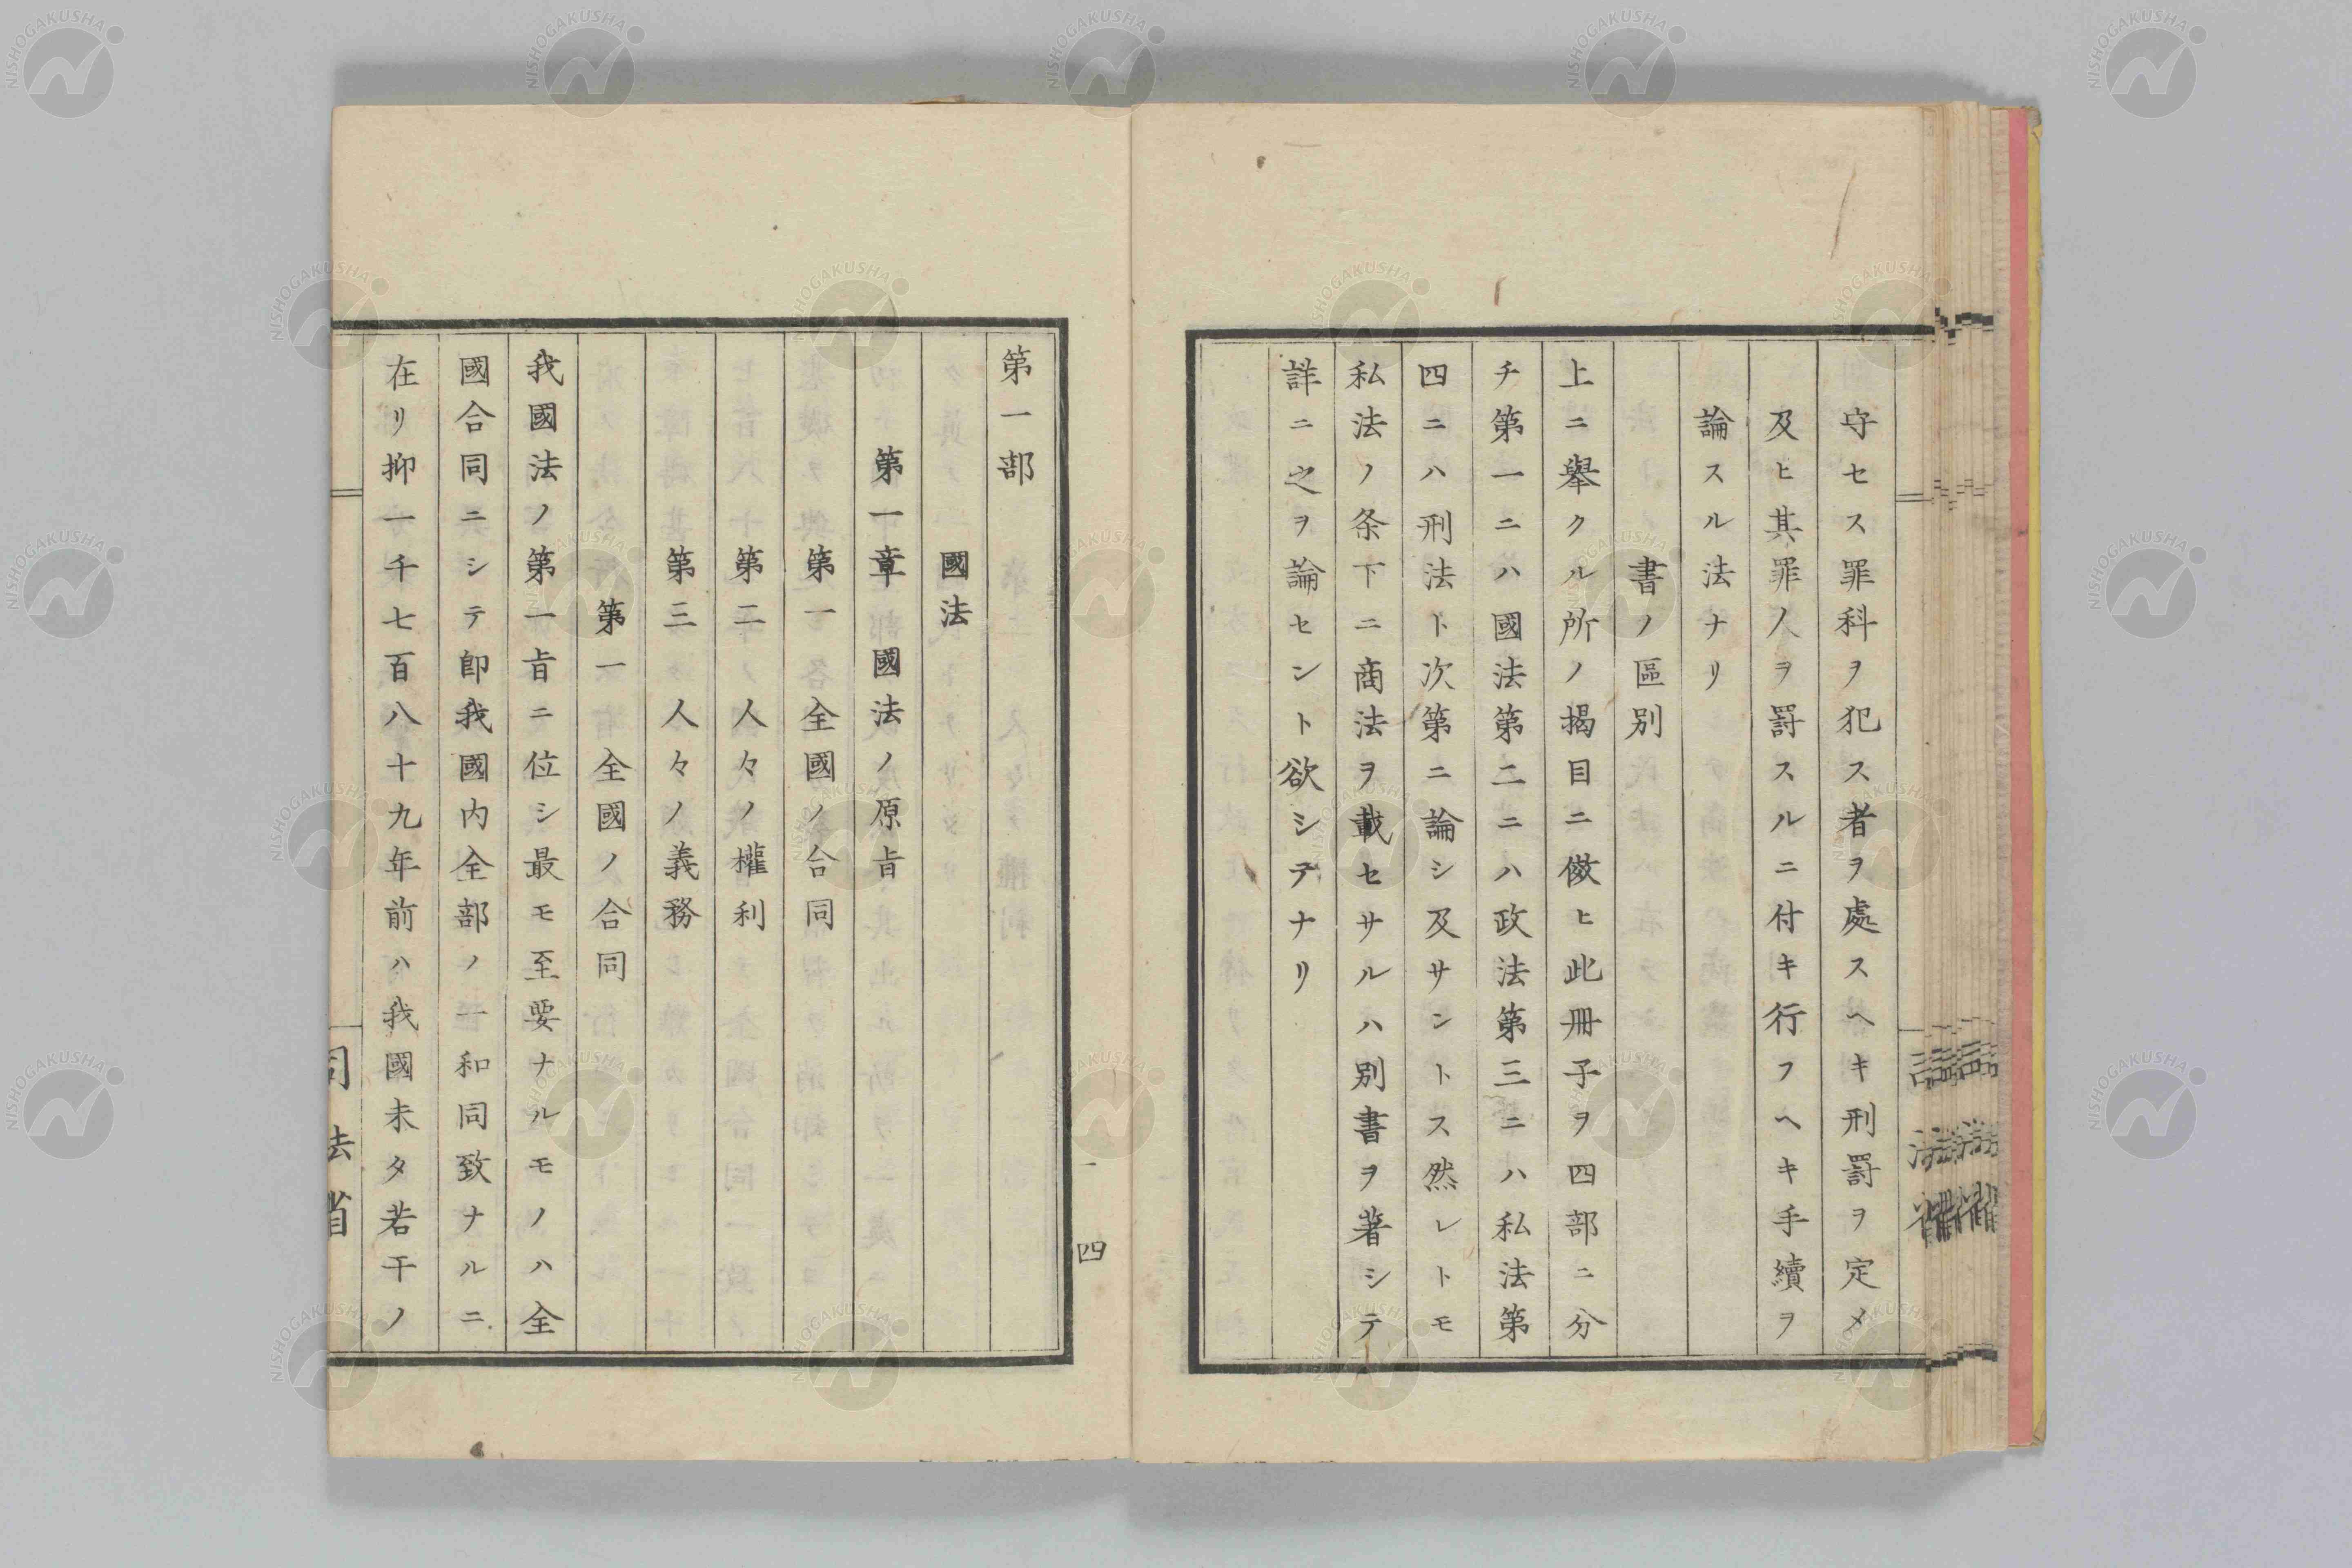 守セス罪科ヲ犯ス者ヲ處スヘキ刑罰ヲ定メ
及ヒ其罪人ヲ罸スルニ付キ行フヘキ手續ヲ
論スル法ナリ
書ノ區別
上ニ舉クル所ノ揭目ニ傚ヒ此冊子ヲ四部ニ分
チ第一ニハ國法第二ニハ政法第三ニハ私法第
四ニハ刑法ト次第ニ論シ及サントス然レトモ
私法ノ条下ニ商法ヲ載セサルハ別書ヲ著シテ
詳ニ之ヲ論セント欲シテナリ
四
第一部
國法
第一章 國法ノ原旨
第一 全國ノ合同
第二 人々ノ權利
第三 人々ノ義務
第一 全國ノ合同
我國法ノ第一旨ニ位シ最モ至要ナルモノハ全
國合同ニシテ卽我國内全部ノ一和同致ナルニ
在リ抑一千七百八十九年前ハ我國未タ若干ノ
司法省
NISHOGAKUSHA